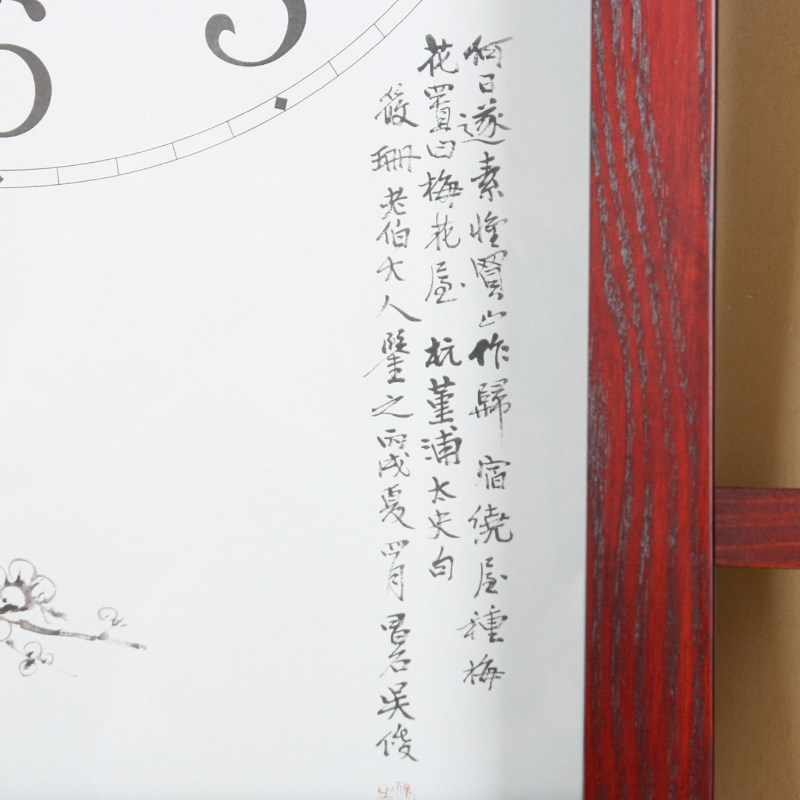 何日遂素懷買山作歸宿繞屋種梅
花置曰梅花屋 杭堇浦太史句
筱珊老伯大人鑒之丙戌夏四月昌石吳俊
5
6